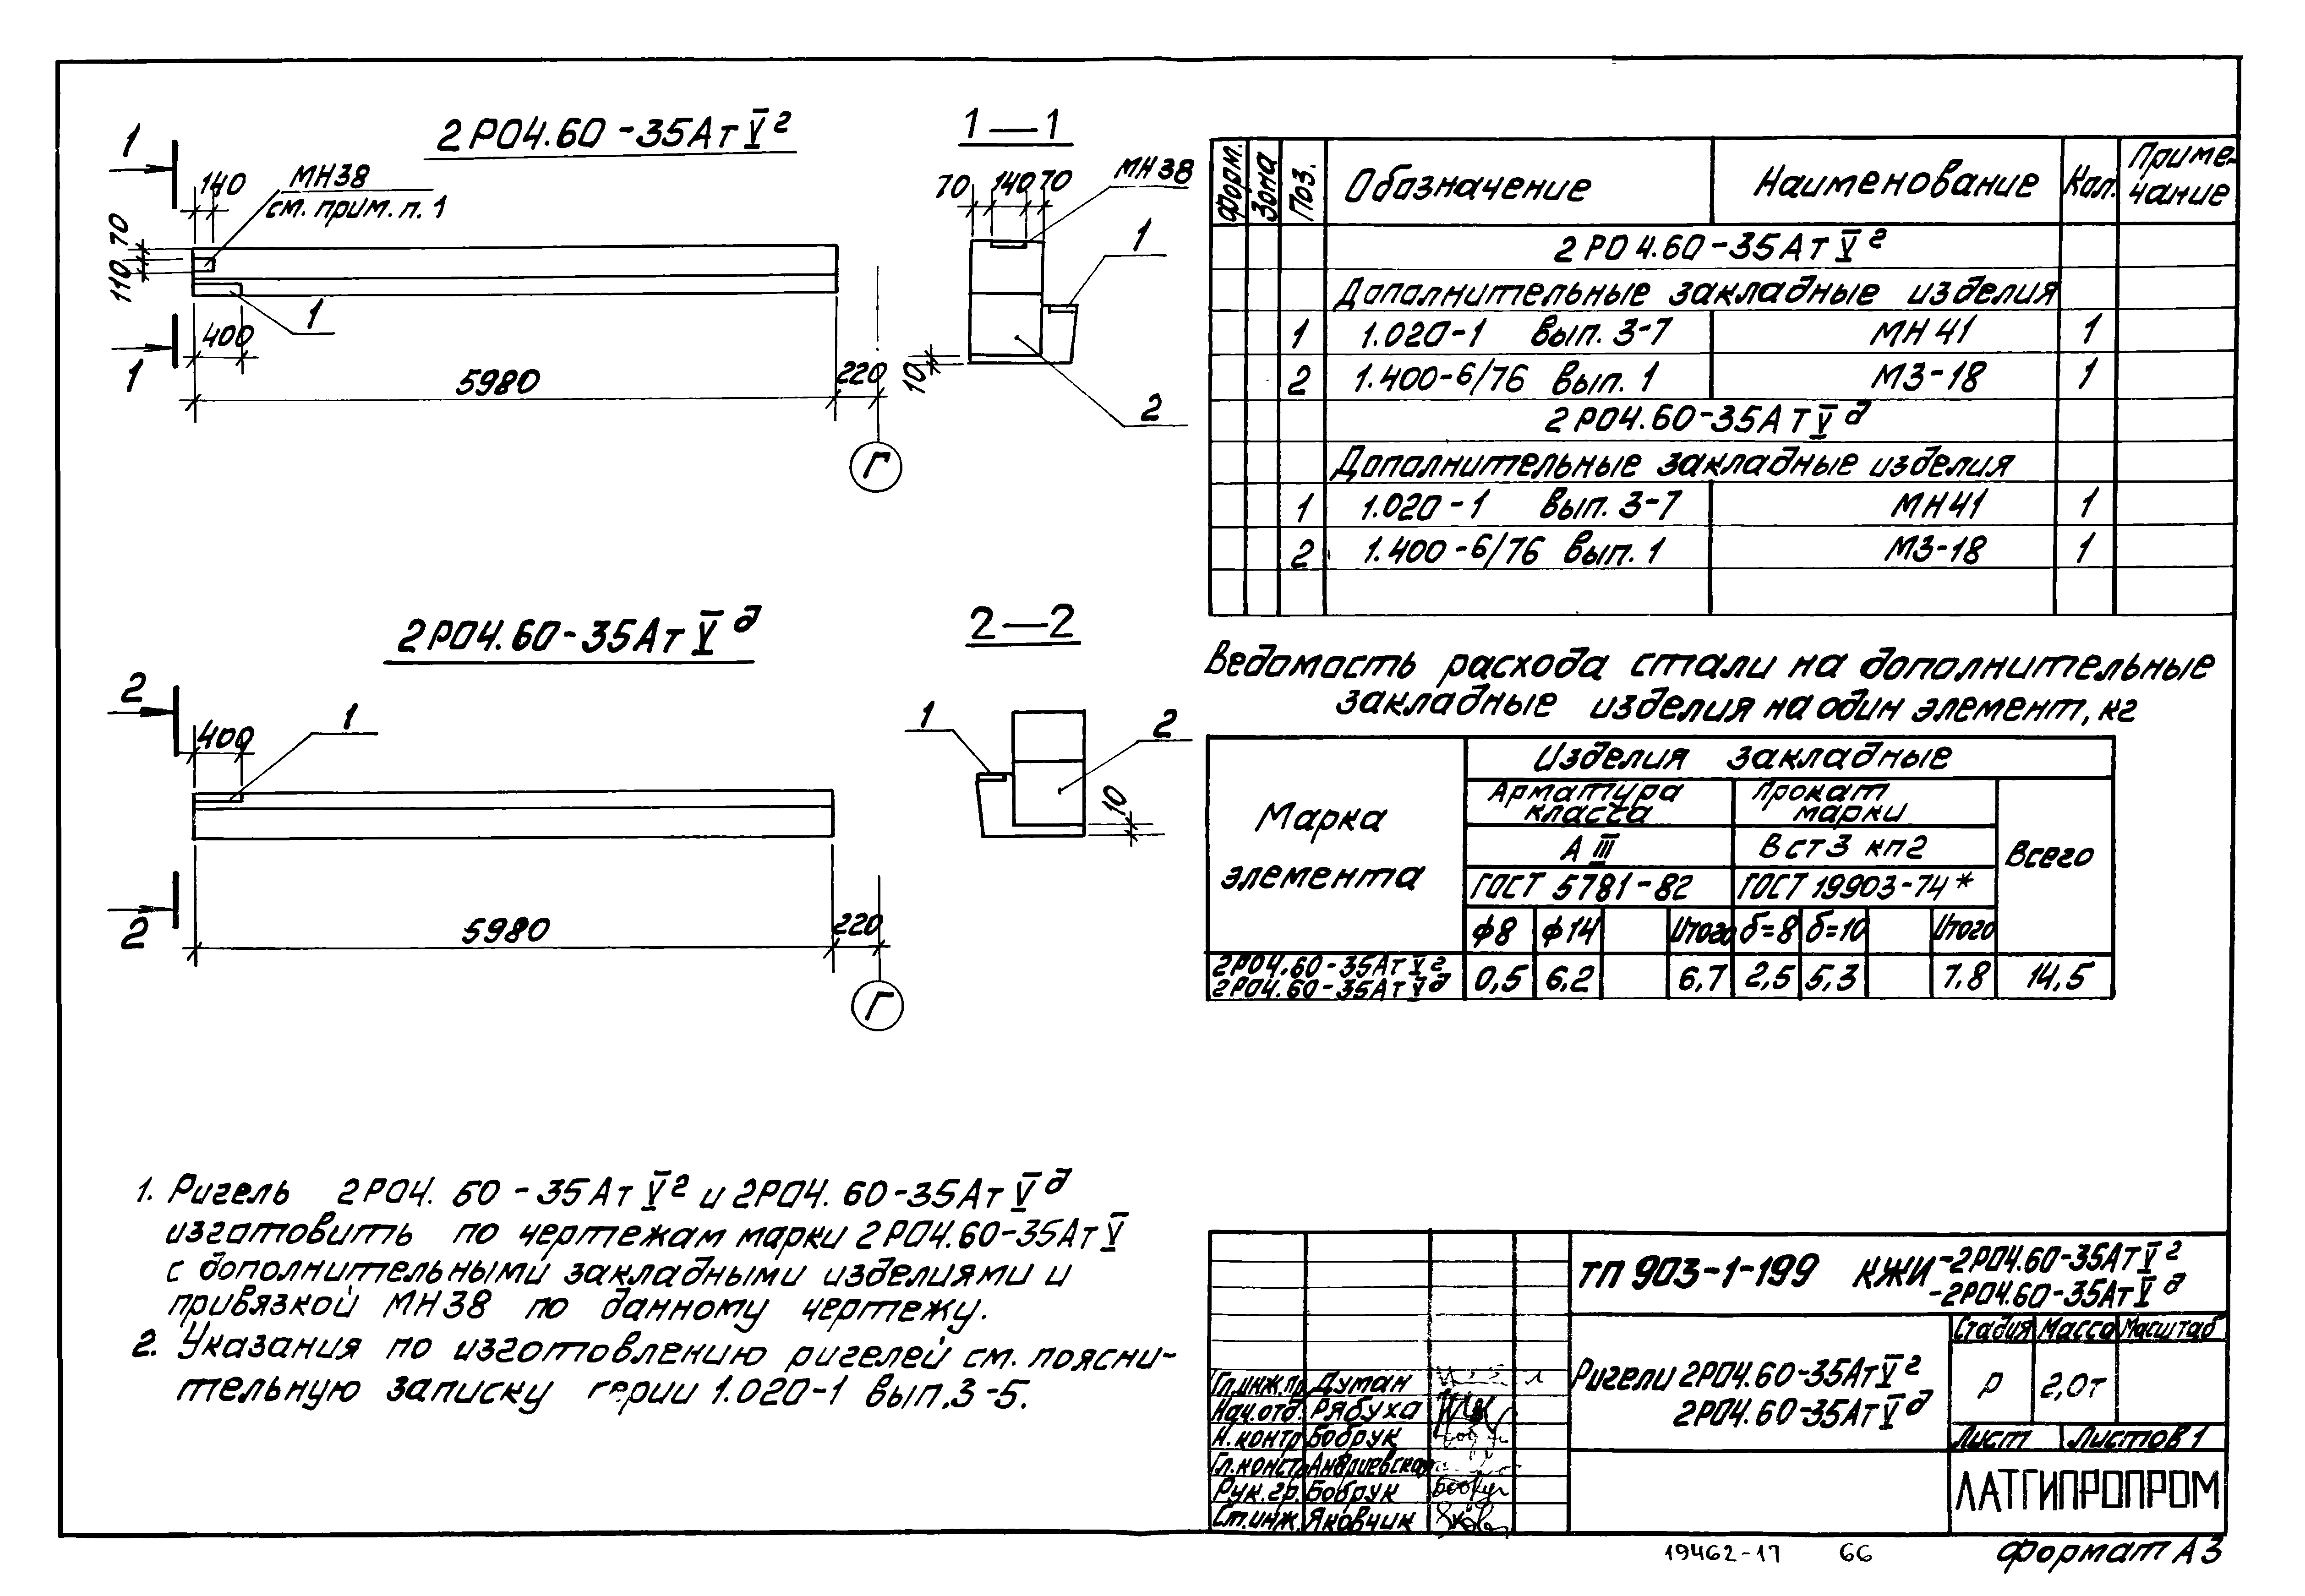 2РО4.60-35АтV̅г
1
140
МН38
см. прим. п. 1
70
110
1
400
1
5980
220
Г
1—1
70 140 70
МН38
1
10
2
2РО4.60-35АтVд
2
400
1
2
5980
220
Г
2—2
1
2
10
Форм.
Зона
Поз.
Обозначение
Наименование
Кол.
Приме-
чание
2РО4.60-35АтVг
Дополнительные закладные изделия
1 1.020-1 вып. 3-7 МН41 1
2 1.400-6/76 вып. 1 МЗ-18 1
2РО4.60-35АтVд
Дополнительные закладные изделия
1 1.020-1 вып. 3-7 МН41 1
2 1.400-6/76 вып. 1 МЗ-18 1
Ведомость расхода стали на дополнительные
закладные изделия на один элемент, кг
Марка
элемента
Изделия закладные
Арматура
класса
Прокат
марки
АIII
Вст3 кп2
Всего
ГОСТ 5781-82
ГОСТ 19903-74*
ф8 ф14 Итого б=8 б=10 Итого
2РО4.60-35АтVг
2РО4.60-35АтVд
0,5 6,2 6,7 2,5 5,3 7,8 14,5
1. Ригель 2РО4.60-35АтVг и 2РО4.60-35АтVд
изготовить по чертежам марки 2РО4.60-35АтV
с дополнительными закладными изделиями и
привязкой МН38 по данному чертежу.
2. Указания по изготовлению ригелей см. поясни-
тельную записку серии 1.020-1 вып.3-5.
ТП 903-1-199 КЖИ-2РО4.60-35АтVг
-2РО4.60-35АтVд
Ригели 2РО4.60-35АтVг
2РО4.60-35АтVд
Стадия Масса Масштаб
Р 2,0т
Лист Листов 1
ЛАТГИПРОПРОМ
Гл.инж.пр. Думан
Нач.отд. Рябуха
Н.контр. Бобрук
Гл.констр. Андриевская
Рук.гр. Бобрук
Ст.инж. Яковчик
19462-17 66
Формат А3